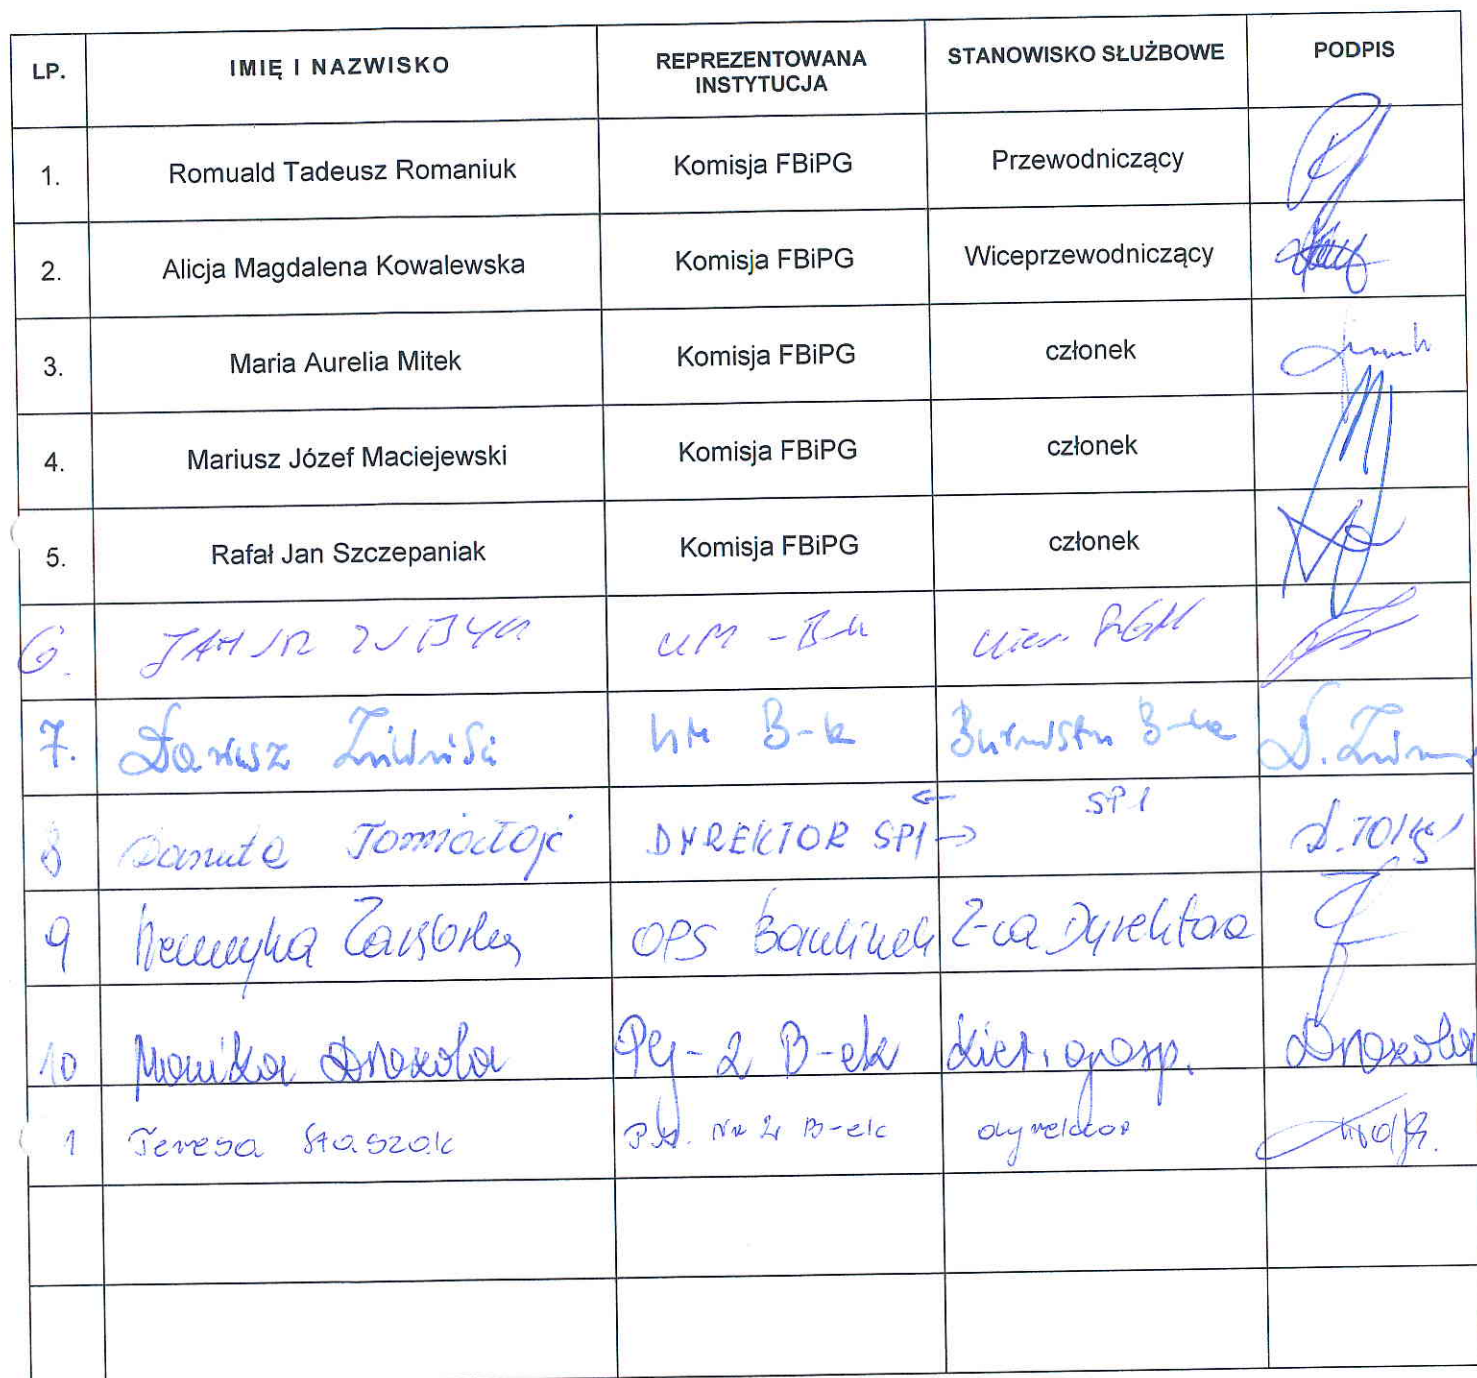 LP. IMIĘ I NAZWISKO REPREZENTOWANA INSTYTUCJA STANOWISKO SŁUŻBOWE PODPIS
1. Romuald Tadeusz Romaniuk Komisja FBiPG Przewodniczący
2. Alicja Magdalena Kowalewska Komisja FBiPG Wiceprzewodniczący
3. Maria Aurelia Mitek Komisja FBiPG członek
4. Mariusz Józef Maciejewski Komisja FBiPG członek
5. Rafał Jan Szczepaniak Komisja FBiPG członek
6. UM - B-k
7. Dariusz UM B-k
8 Danuta DYREKTOR SP1 SP1
9 OPS Z-ca Dyrektora
10 Monika B-ek Kier. gosp.
1 Teresa Staszak Nr 2 B-ek dyrektor